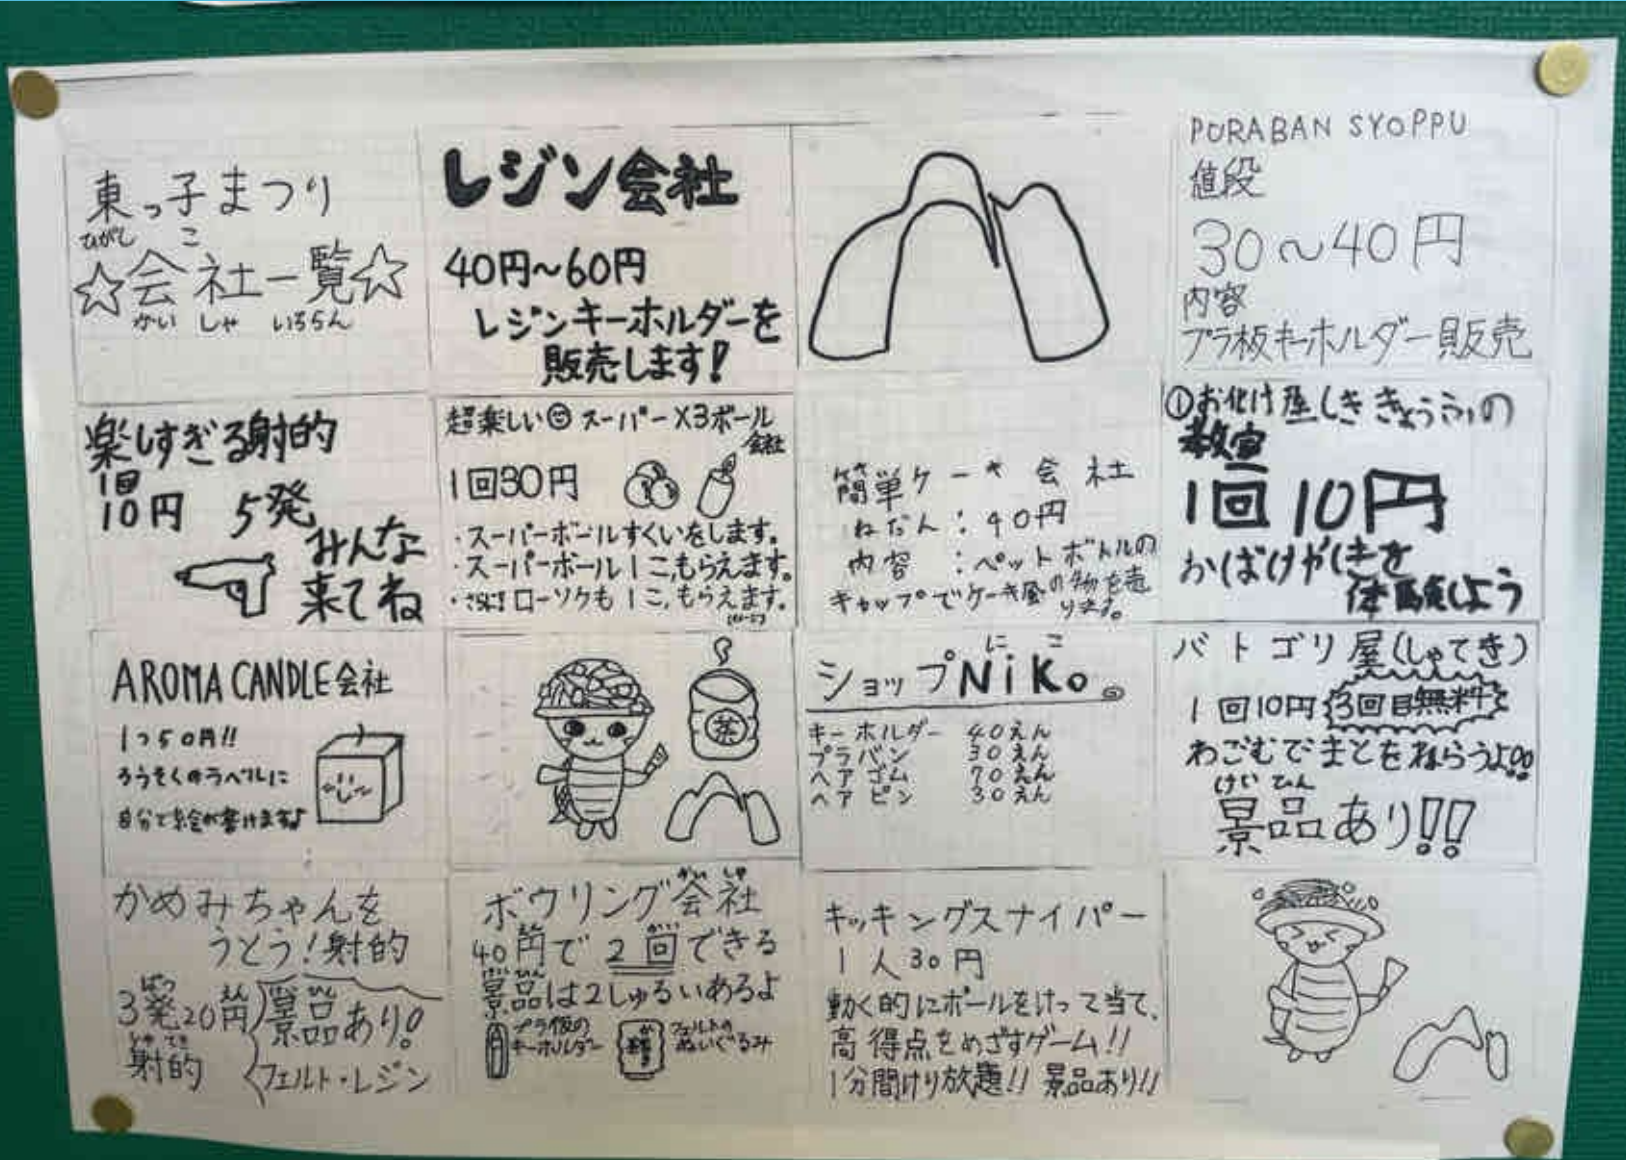 東っ子まつり
ひがし こ
☆会社一覧☆
かい しゃ いちらん
レジン会社
40円～60円
レジンキーホルダーを
販売します!
PURABAN SYOPPU
値段
30～40円
内容
プラ板キーホルダー販売
楽しすぎる射的
1回
10円 5発
みんな
来てね
超楽しい スーパー×3ボール
会社
1回30円
・スーパーボールすくいをします。
・スーパーボール1こ,もらえます。
・さらに!ローソクも1こ,もらえます。
簡単ケーキ会社
ねだん:40円
内容:ペットボトルの
キャップでケーキ屋の物を売
ります。
①お化け屋しききょうふの
教室
1回10円
おばけやしきを
体験しよう
AROMA CANDLE会社
1つ50円!!
ろうそくのラベルに
自分で絵が書けます♪
茶
にこ
ショップNiKo。
キーホルダー 40えん
プラバン 30えん
ヘアゴム 70えん
ヘアピン 30えん
バトゴリ屋(しゃてき)
1回10円 3回目無料
わごむでまとをねらうよ!!
けいひん
景品あり!!
かめみちゃんを
うとう!射的
ぱつ えん けいひん
3発20円 景品あり!
しゃてき
射的
フェルト・レジン
かいしゃ
ボウリング会社
かい
40円で2回できる
けいひん
景品は2しゅるいあるよ
プラ板の
キーホルダー
フェルトの
ぬいぐるみ
キッキングスナイパー
1人30円
動く的にボールをけって当て、
高得点をめざすゲーム!!
1分間けり放題!! 景品あり!!